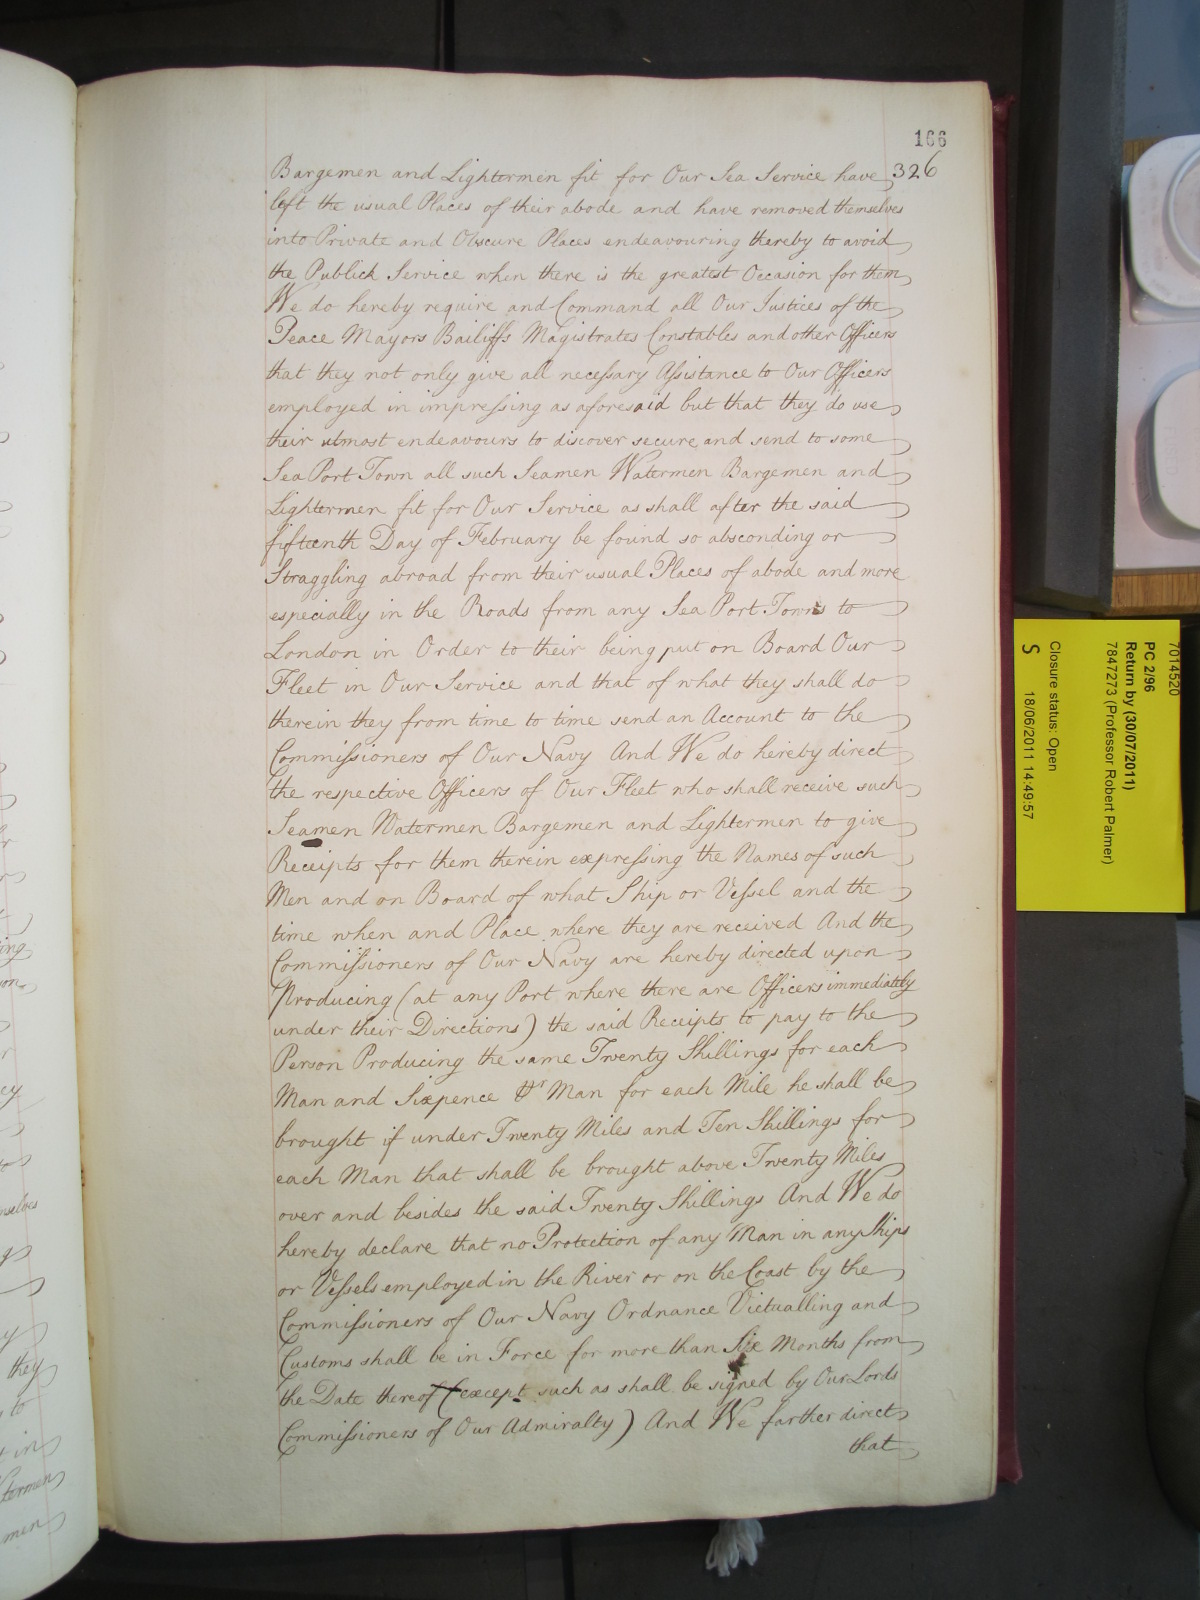 166
326
Bargemen and Lightermen fit for Our Sea Service have
left the usual Places of their abode and have removed themselves
into Private and Obscure Places endeavouring thereby to avoid
the Publick Service when there is the greatest Occasion for them
We do hereby require and Command all Our Justices of the
Peace Mayors Bailiffs Magistrates Constables and other Officers
that they not only give all necessary Assistance to Our Officers
employed in impressing as aforesaid but that they do use
their utmost endeavours to discover secure and send to some
Sea Port Town all such Seamen Watermen Bargemen and
Lightermen fit for Our Service as shall after the said
fifteenth Day of February be found so absconding or
Straggling abroad from their usual Places of abode and more
especially in the Roads from any Sea Port Towns to
London in Order to their being put on Board Our
Fleet in Our Service and that of what they shall do
therein they from time to time send an Account to the
Commissioners of Our Navy And We do hereby direct
the respective Officers of Our Fleet who shall receive such
Seamen Watermen Bargemen and Lightermen to give
Receipts for them therein expressing the Names of such
Men and on Board of what Ship or Vessel and the
time when and Place where they are received And the
Commissioners of Our Navy are hereby directed upon
Producing (at any Port where there are Officers immediately
under their Directions) the said Receipts to pay to the
Person Producing the same Twenty Shillings for each
Man and Sixpence ⅌r Man for each Mile he shall be
brought if under Twenty Miles and Ten Shillings for
each Man that shall be brought above Twenty Miles
over and besides the said Twenty Shillings And We do
hereby declare that no Protection of any Man in any Ships
or Vessels employed in the River or on the Coast by the
Commissioners of Our Navy Ordnance Victualling and
Customs shall be in Force for more than Six Months from
the Date thereof (except such as shall be signed by Our Lords
Commissioners of Our Admiralty) And We farther direct
that
7014520
PC 2/96
Return by (30/07/2011)
7847273 (Professor Robert Palmer)
Closure status: Open
S 18/06/2011 14:49:57
they
in
men